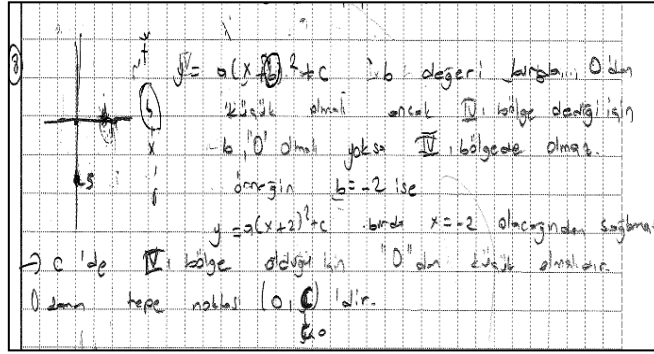 8
y = a(x+b)² + c b değeri burda 0'dan
küçük olmalı ancak IV. bölge dediği için
b, "0" olmalı yoksa IV. bölgede olmaz.
örneğin b = -2 ise
y = a(x+2)² + c burda x = -2 olacağından sağlamaz
→ c'de IV. bölge olduğu için "0"dan küçük olmalıdır.
O zaman tepe noktası (0, c)'dir.
c<0